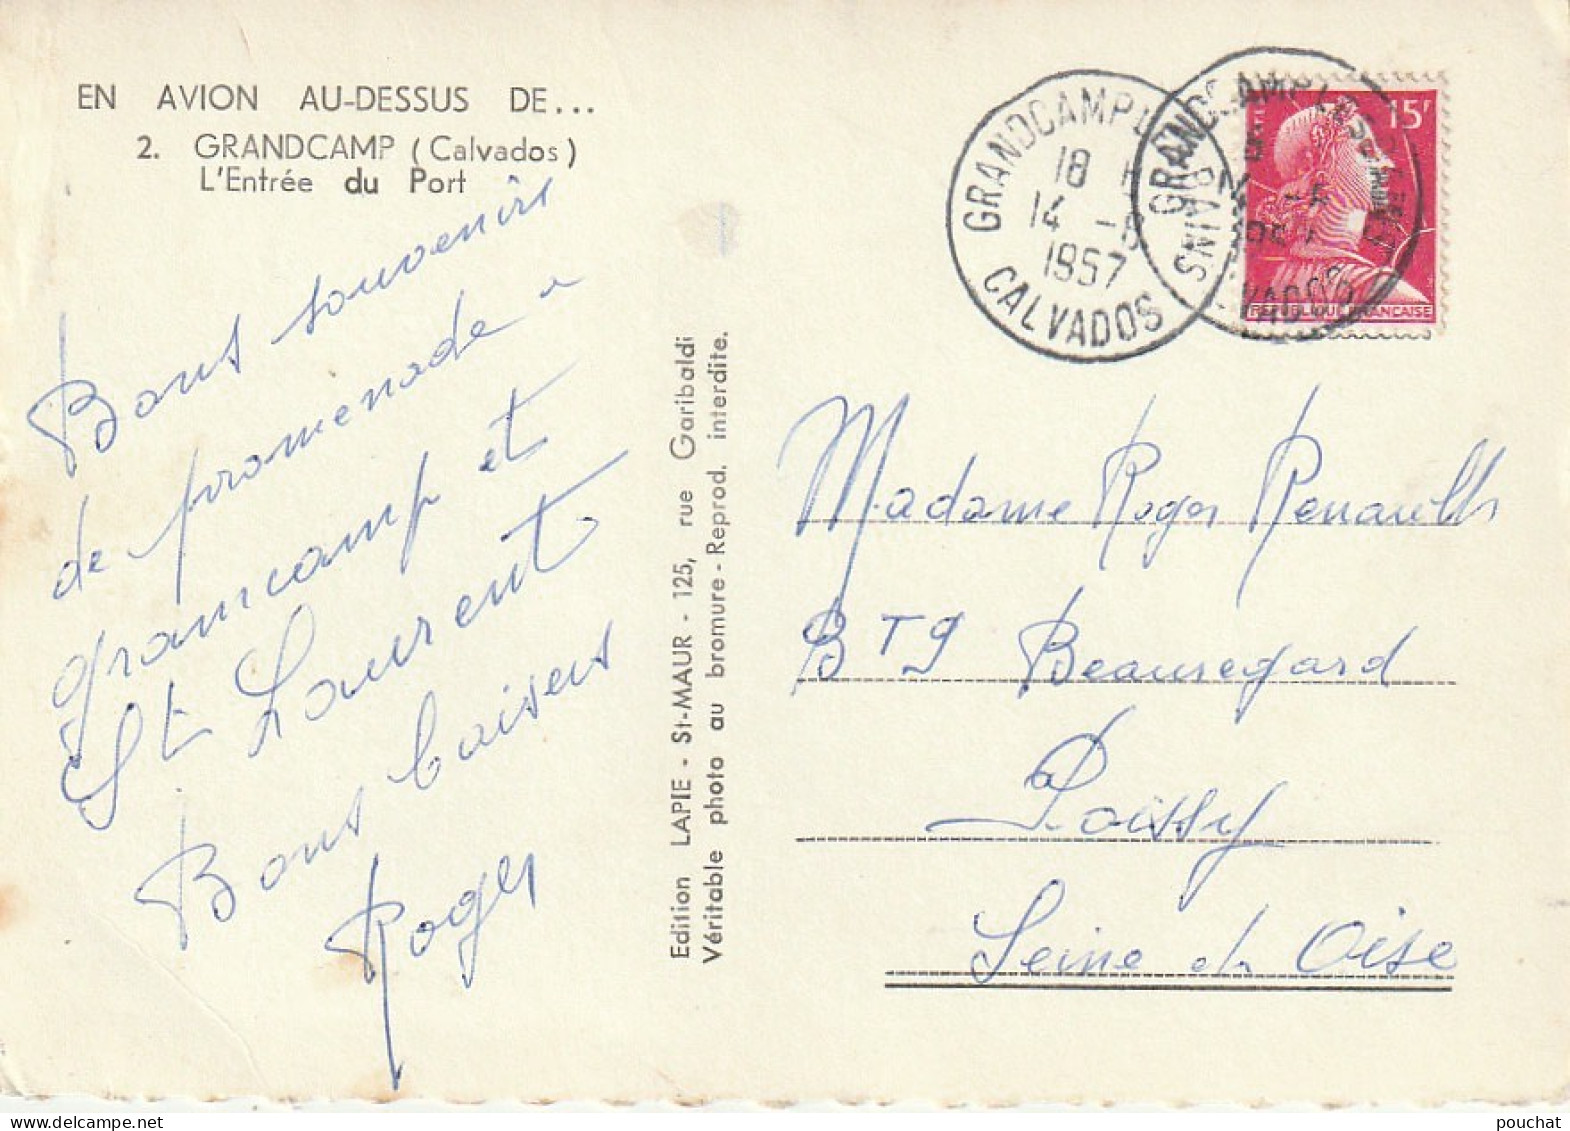 EN AVION AU-DESSUS DE...
2. GRANDCAMP (Calvados)
L'Entrée du Port
Bons souvenirs
de promenade à
grancamp et
St Laurent
Bons baisers
Roger
Edition LAPIE - St-MAUR - 125, rue Garibaldi
Véritable photo au bromure - Reprod. interdite.
GRANDCAMP LES BAINS
18 H
14 -6
1957
CALVADOS
15F
REPUBLIQUE FRANCAISE
Madame Roger Renault
BTg Beauregard
Poissy
Seine et Oise
pouchat